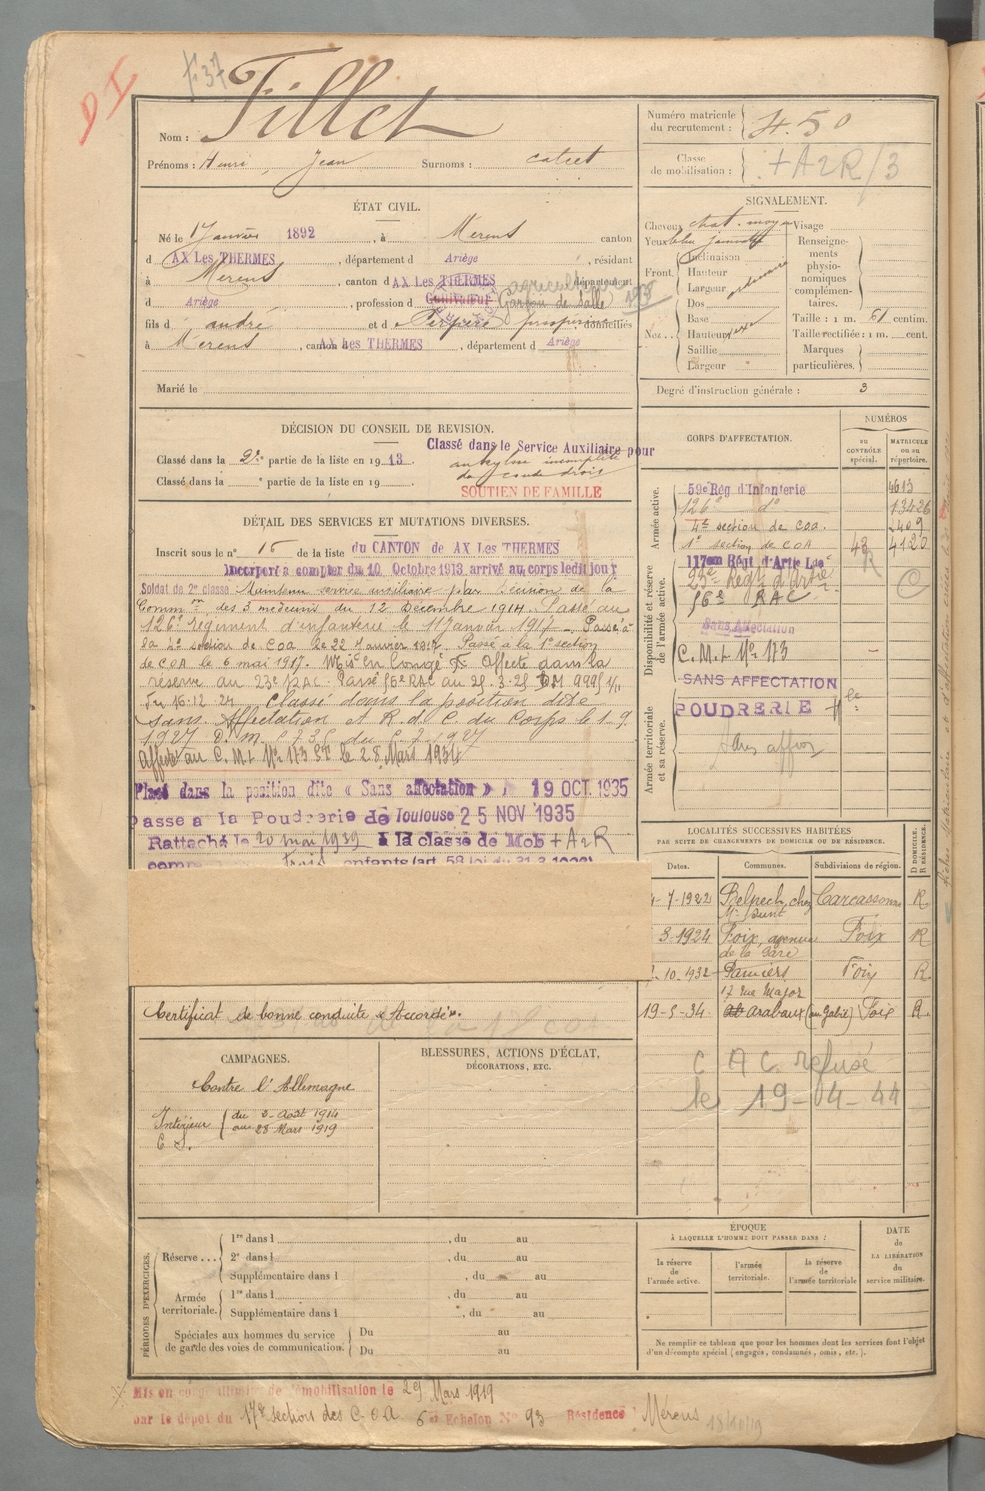 D I
F 37
Nom : Fillet
Prénoms : Henri Jean Surnoms :
Numéro matricule du recrutement : 450
Classe de mobilisation : + A2R/3
ÉTAT CIVIL.
Né le 17 Janvier 1892, à Mérens canton
d AX Les THERMES, département d Ariège, résidant
à Mérens, canton d AX Les THERMES département
d Ariège, profession d Cultivateur Garçon de Salle
agriculteur
fils d André et d domiciliés
à Mérens, canton AX Les THERMES, département d Ariège
Marié le
SIGNALEMENT.
Cheveux chat. moyen
Yeux bleu
Front.
Inclinaison
Hauteur
Largeur ordinaire
Nez..
Dos
Base
Hauteur
Saillie
Largeur
Visage
Renseignements physionomiques complémentaires.
Taille : 1 m. 61 centim.
Taille rectifiée : 1 m. cent.
Marques particulières.
Degré d'instruction générale : 3
DÉCISION DU CONSEIL DE REVISION.
Classé dans la 2e partie de la liste en 1913.
Classé dans le Service Auxiliaire pour
ankylose incomplète
du coude droit
Classé dans la e partie de la liste en 19
SOUTIEN DE FAMILLE
DÉTAIL DES SERVICES ET MUTATIONS DIVERSES.
Inscrit sous le n° 16 de la liste du CANTON de AX Les THERMES
Incorporé à compter du 10 Octobre 1913 arrivé au corps ledit jour
Soldat de 2e classe Maintenu service auxiliaire par décision de la
Common des 3 médecins du 12 Décembre 1914. Passé au
126e régiment d'infanterie le 11 Janvier 1917 - Passé à
la 4e section de COA le 22 Janvier 1917. Passé à la 1e section
de COA le 6 mai 1917. Mis en Congé Affecté dans la
réserve au 23e RAC. Passé 56e RAC au 25.3.25 DM 9995 1/11
du 16-12-24 Classé dans la position dite
Sans Affectation et R. d. C du Corps le 1.9.
1927 D. m. 5735 du 5.7.1927
Affecté au C.M.I. No 173 le 28 Mars 1934
Placé dans la position dite « Sans affectation » 19 OCT. 1935
passé à la Poudrerie de Toulouse 25 NOV 1935
Rattaché le 20 mai 1939 à la classe de Mob + A2R
trois enfants (art. 58 loi du 31.3.1928)
Certificat de bonne conduite « Accordé ».
CORPS D'AFFECTATION.
NUMÉROS
au CONTRÔLE spécial.
MATRICULE ou au répertoire.
Armée active.
59e Rég d'Infanterie 4613
126e d° 13426
4e section de COA. 2409
1e section de COA 43 4125
Disponibilité et réserve de l'armée active.
117ème Régt d'Artie Lde
23e Régt d'Artie
R
C
56e RAC
Sans Affectation
C.M.I. No 173
SANS AFFECTATION
Armée territoriale et sa réserve.
POUDRERIE Tlse
Sans affon
LOCALITÉS SUCCESSIVES HABITÉES
PAR SUITE DE CHANGEMENTS DE DOMICILE OU DE RÉSIDENCE.
D DOMICILE. R RÉSIDENCE.
Dates. Communes. Subdivisions de région.
4-7-1922 Belpech, chez Carcassonne R
3 1924 Foix, avenue de la Gare Foix R
10.1932 Pamiers 17 rue Major Foix R
19-5-34 Arabaux (au Gabié) Foix R
C A C refusé
le 19-04-44
CAMPAGNES.
Contre l'Allemagne
Intérieur du 3 Août 1914
C S. au 28 Mars 1919
BLESSURES, ACTIONS D'ÉCLAT,
DÉCORATIONS, ETC.
PÉRIODES D'EXERCICES.
Réserve ...
1re dans l , du au
2e dans l , du au
Supplémentaire dans l , du au
Armée territoriale.
1re dans l , du au
Supplémentaire dans l , du au
Spéciales aux hommes du service de garde des voies de communication.
Du au
Du au
ÉPOQUE
À LAQUELLE L'HOMME DOIT PASSER DANS :
la réserve de l'armée active.
l'armée territoriale.
la réserve de l'armée territoriale
DATE de LA LIBÉRATION du service militaire.
Ne remplir ce tableau que pour les hommes dont les services font l'objet
d'un décompte spécial (engagés, condamnés, omis, etc.).
Mis en congé illimité de démobilisation le 29 Mars 1919
par le dépôt du 17e section des C.O.A 6e Echelon No 93 Résidence Mérens